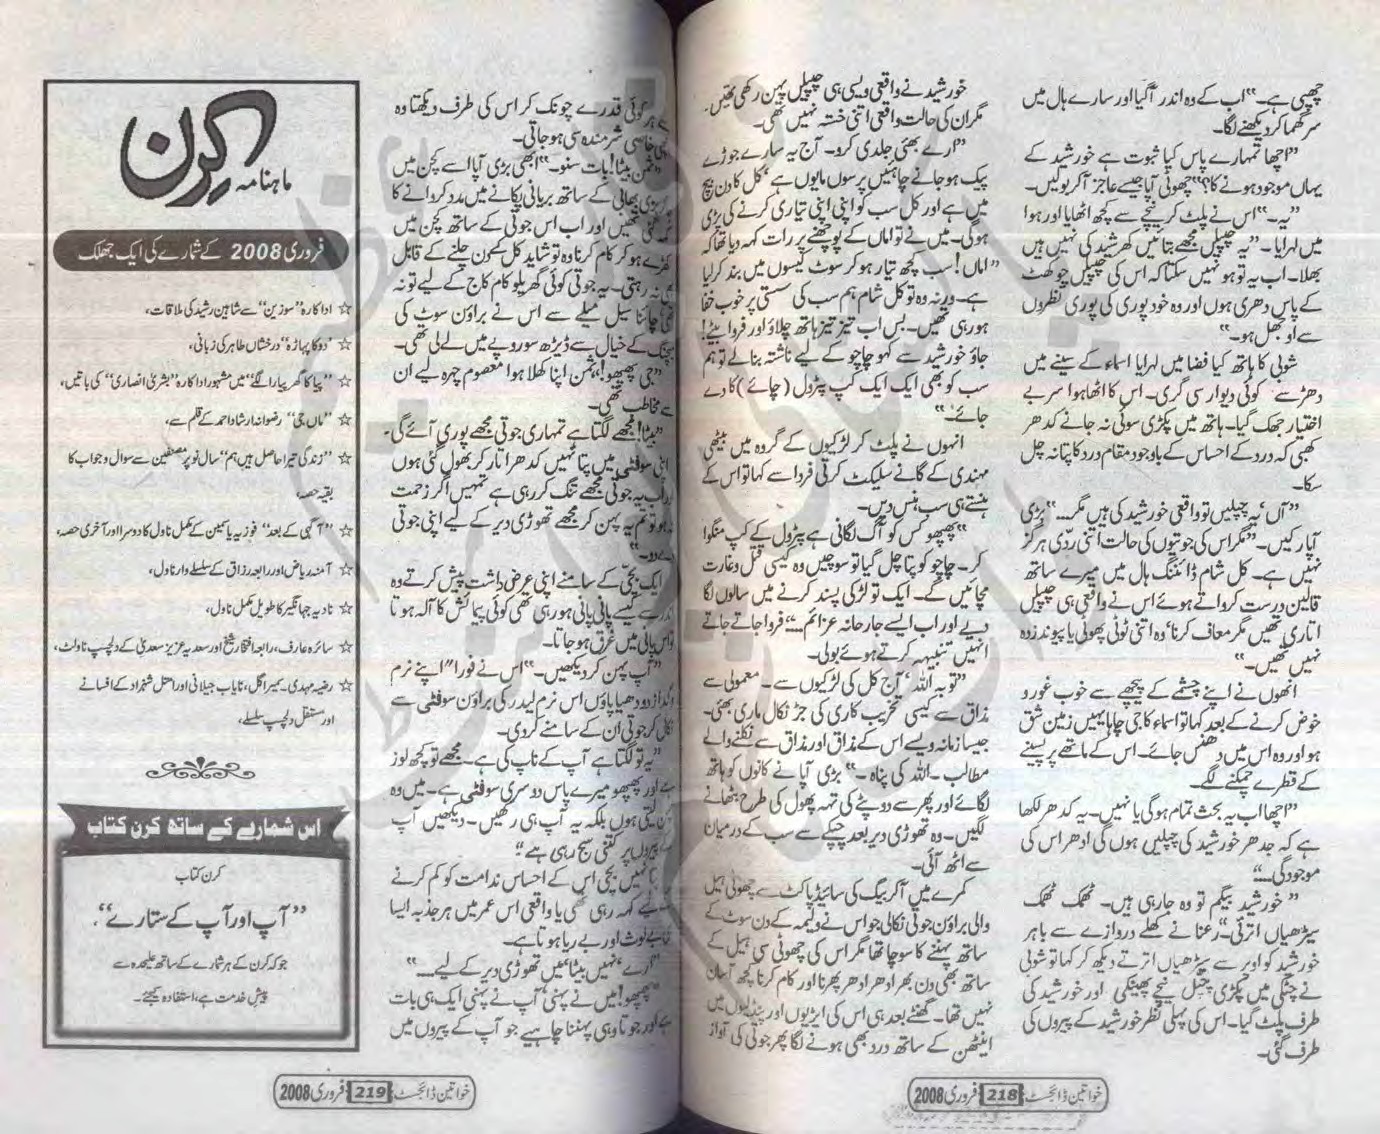 چھپی ہے۔“ اب کے وہ اندر آگیا اور سارے ہال میں
سر گھما کر دیکھنے لگا۔
”اچھا تمہارے پاس کیا ثبوت ہے خورشید کے
یہاں موجود ہونے کا؟“ چھوٹی آپا جیسے عاجز آکر بولیں۔
”یہ۔“ اس نے پلٹ کر نیچے سے کچھ اٹھایا اور ہوا
میں لہرایا۔ ”یہ چپلیں مجھے بتائیں کہ خورشید کی نہیں ہیں
بھلا۔ اب یہ تو ہو نہیں سکتا کہ اس کی چپلیں چوکھٹ
کے پاس دھری ہوں اور وہ خود پوری کی پوری نظروں
سے اوجھل ہو۔“
شوبی کا ہاتھ کیا فضا میں لہرایا اسماء کے سینے میں
دھڑ سے کوئی دیوار سی گری۔ اس کا اٹھا ہوا سر بے
اختیار جھک گیا۔ ہاتھ میں پکڑی سوئی نہ جانے کدھر
کھبی کہ درد کے احساس کے باوجود مقام درد کا پتا نہ چل
سکا۔
”آں‘ یہ چپلیں تو واقعی خورشید کی ہیں مگر…“ بڑی
آپا رکیں۔ ”مگر اس کی جوتیوں کی حالت اتنی ردّی ہرگز
نہیں ہے۔ کل شام ڈائننگ ہال میں میرے ساتھ
قالین درست کرواتے ہوئے اس نے واقعی ہی چپلیں
اتاری تھیں مگر معاف کرنا‘ وہ اتنی ٹوٹی پھوٹی یا پیوند زدہ
نہیں تھیں۔“
انھوں نے اپنے چشمے کے پیچھے سے خوب غور و
خوض کرنے کے بعد کہا تو اسماء کا جی چاہا یہیں زمین شق
ہو اور وہ اس میں دھنس جائے۔ اس کے ماتھے پر پسینے
کے قطرے چمکنے لگے۔
”اچھا اب یہ بحث تمام ہوگی یا نہیں۔ یہ کدھر لکھا
ہے کہ جدھر خورشید کی چپلیں ہوں گی ادھر اس کی
موجودگی…“
”خورشید بیگم تو وہ جارہی ہیں۔ ٹھک ٹھک
سیڑھیاں اترتی۔“ رعنا نے کھلے دروازے سے باہر
خورشید کو اوپر سے سیڑھیاں اترتے دیکھ کر کہا تو شوبی
نے چٹکی میں پکڑی چپل نیچے پھینکی اور خورشید کی
طرف پلٹ گیا۔ اس کی پہلی نظر خورشید کے پیروں کی
طرف گئی۔
خورشید نے واقعی ویسی ہی چپلیں پہن رکھی تھیں۔
مگر ان کی حالت واقعی اتنی خستہ نہیں تھی۔
”ارے بھئی جلدی کرو۔ آج یہ سارے جوڑے
پیک ہوجانے چاہئیں پرسوں مایوں ہے‘ کل کا دن بیچ
میں ہے اور کل سب کو اپنی اپنی تیاری کرنے کی پڑی
ہوگی۔ میں نے تو اماں کے پوچھنے پر رات کہہ دیا تھا کہ
”اماں! سب کچھ تیار ہوکر سوٹ کیسوں میں بند کر لیا
ہے۔ ورنہ وہ تو کل شام ہم سب کی سستی پر خوب خفا
ہو رہی تھیں۔ بس اب تیز تیز ہاتھ چلاؤ اور فروا بیٹے!
جاؤ خورشید سے کہو چاچو کے لیے ناشتہ بنا لے تو ہم
سب کو بھی ایک ایک کپ پٹرول (چائے) کا دے
جائے۔“
انہوں نے پلٹ کر لڑکیوں کے گروہ میں بیٹھی
مہندی کے گانے سلیکٹ کرتی فروا سے کہا تو اس کے
ہنستے ہی سب ہنس دیں۔
”پھپھو کس کو آگ لگانی ہے پٹرول کے کپ منگوا
کر۔ چاچو کو پتا چل گیا تو سوچیں وہ کیسی قتل و غارت
مچائیں گے۔ ایک تو لڑکی پسند کرنے میں سالوں لگا
دیے اور اب ایسے جارحانہ عزائم…“ فروا جاتے جاتے
انہیں تنبیہہ کرتے ہوئے بولی۔
”توبہ اللہ‘ آج کل کی لڑکیوں سے۔ معمولی سے
مذاق سے کیسی تخریب کاری کی جڑ نکال ماری بھئی۔
جیسا زمانہ ویسے اس کے مذاق اور مذاق سے نکلنے والے
مطالب۔ اللہ کی پناہ۔“ بڑی آپا نے کانوں کو ہاتھ
لگائے اور پھر سے دوپٹے کی تہہ پھول کی طرح بٹھانے
لگیں۔ وہ تھوڑی دیر بعد چپکے سے سب کے درمیان
سے اٹھ آئی۔
کمرے میں آکر بیگ کی سائیڈ پاکٹ سے چھوٹی ہیل
والی براؤن جوتی نکالی جو اس نے ولیمہ کے دن سوٹ کے
ساتھ پہننے کا سوچا تھا مگر اس کی چھوٹی سی ہیل کے
ساتھ بھی دن بھر ادھر ادھر پھرنا اور کام کرنا کچھ آسان
نہیں تھا۔ گھنٹے بعد ہی اس کی ایڑیوں اور پنڈلیوں میں
اینٹھن کے ساتھ درد بھی ہونے لگا پھر جوتی کی آواز
خواتین ڈائجسٹ 218 فروری 2008
ہر کوئی قدرے چونک کر اس کی طرف دیکھتا وہ
خاصی شرمندہ سی ہو جاتی۔
”ثمن بیٹا! بات سنو۔“ ابھی بڑی آپا اسے کچن میں
بڑی بھابی کے ساتھ بریانی پکانے میں مدد کروانے کا
تھیں اور اب اس جوتی کے ساتھ کچن میں
کھڑے ہو کر کام کرنا وہ تو شاید کل کو چلنے کے قابل
نہ رہتی۔ یہ جوتی کوئی گھریلو کام کاج کے لیے تو نہ
چائنا سیل میلے سے اس نے براؤن سوٹ کی
میچنگ کے خیال سے ڈیڑھ سو روپے میں لے لی تھی۔
”جی پھپھو!“ ثمن اپنا کھلا ہوا معصوم چہرہ لیے ان
سے مخاطب تھی۔
”بیٹا! مجھے لگتا ہے تمہاری جوتی مجھے پوری آئے گی۔
اپنی سوفٹی میں پتا نہیں کدھر اتار کر بھول گئی ہوں
اور اب یہ جوتی مجھے تنگ کر رہی ہے تمہیں اگر زحمت
نہ ہو تو تم یہ پہن کر مجھے تھوڑی دیر کے لیے اپنی جوتی
دے دو۔“
ایک بچی کے سامنے اپنی عرض داشت پیش کرتے وہ
اندر سے کیسے پانی پانی ہو رہی تھی کوئی پیمائش کا آلہ ہوتا
تو اس پانی میں غرق ہو جاتا۔
”آپ پہن کر دیکھیں۔“ اس نے فوراً اپنے نرم
گداز دودھیا پاؤں اس نرم لیدر کی براؤن سوفٹی سے
نکال کر جوتی ان کے سامنے کردی۔
”یہ تو لگتا ہے آپ کے ناپ کی ہے۔ مجھے تو کچھ لوز
ہے اور پھپھو میرے پاس دوسری سوفٹی ہے۔ میں وہ
پہن لیتی ہوں بلکہ یہ آپ ہی رکھیں۔ دیکھیں آپ
کے پیروں پر کتنی سج رہی ہے۔“
پتا نہیں بچی اس کے احساس ندامت کو کم کرنے
کے لیے کہہ رہی تھی یا واقعی اس عمر میں ہر جذبہ ایسا
بے لوث اور بے ریا ہوتا ہے۔
”ارے‘ نہیں بیٹا‘ میں تھوڑی دیر کے لیے…“
”پھپھو! میں نے پہنی‘ آپ نے پہنی ایک ہی بات
ہے اور جوتا وہی پہننا چاہیے جو آپ کے پیروں میں
ماہنامہ کرن
فروری 2008 کے شمارے کی ایک جھلک
☆ اداکارہ ”سوزین“ سے شاہین رشید کی ملاقات،
☆ ”دو کا پہاڑہ“ درخشاں طاہر کی زبانی،
☆ ”پیا کا گھر پیارا لگے“ میں مشہور اداکارہ ”بشریٰ انصاری“ کی باتیں،
☆ ”ماں جی“ رضوانہ ارشاد احمد کے قلم سے،
☆ ”زندگی تیرا حاصل ہیں ہم“ سال نو پر مصنفین سے سوال و جواب کا
بقیہ حصہ،
☆ ”آگہی کے بعد“ فوزیہ یاسمین کے مکمل ناول کا دوسرا اور آخری حصہ،
☆ آمنہ ریاض اور رابعہ رزاق کے سلسلے وار ناول،
☆ نادیہ جہانگیر کا طویل مکمل ناول،
☆ سائرہ عارف، رابعہ افتخار شیخ اور سعدیہ عزیز سعدی کے دلچسپ ناولٹ،
☆ رضیہ مہدی، سمیرا گل، نایاب جیلانی اور امتل شہزاد کے افسانے
اور مستقل دلچسپ سلسلے،
اس شمارے کے ساتھ کرن کتاب
کرن کتاب
”آپ اور آپ کے ستارے“،
جو کہ کرن کے ہر شمارے کے ساتھ علیحدہ سے
پیشِ خدمت ہے، استفادہ کیجئے۔
خواتین ڈائجسٹ 219 فروری 2008